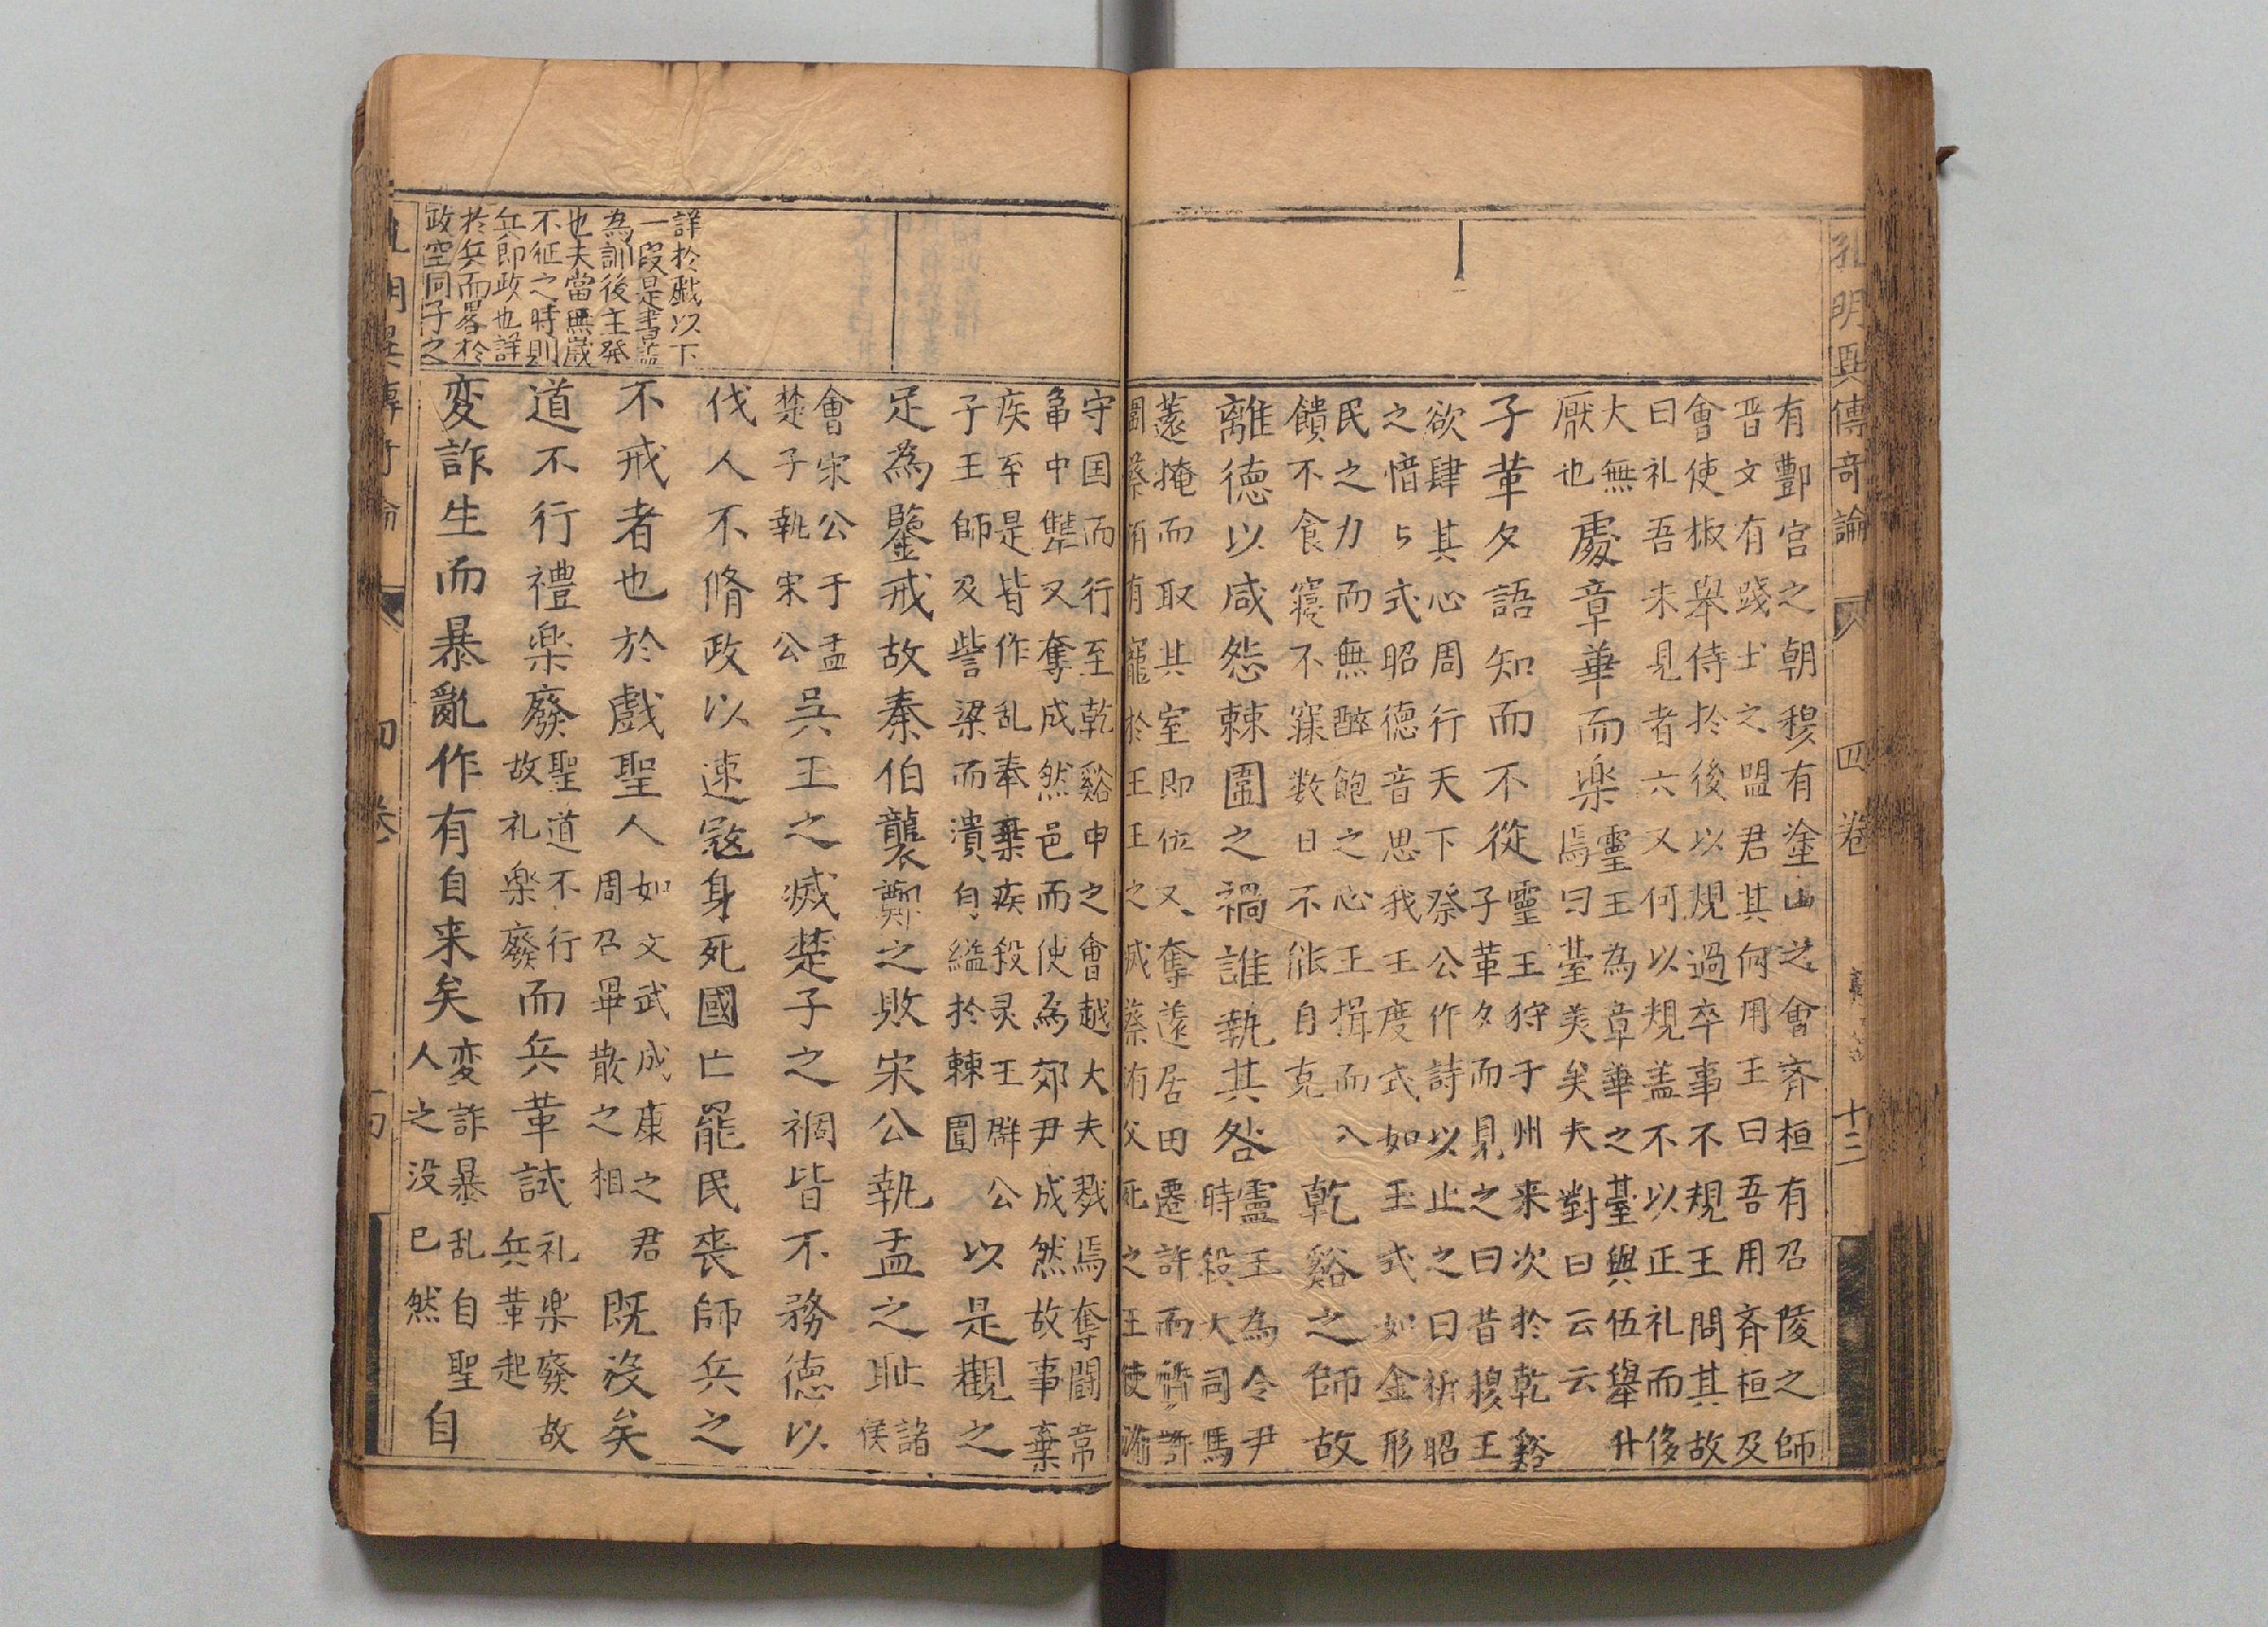 孔明異傳奇論 四卷 十二
有酆宮之朝穆有塗山之會齊桓有召陵之師
晋文有踐土之盟君其何用王曰吾用齊桓及
會使椒舉侍於後以規過卒事不規王問其故
曰礼吾未見者六又何以規盖不以正礼而侈
大無
厭也
處章華而楽
靈王為章華之臺與伍舉升
焉曰䑓美矣夫對曰云云
子革夕語知而不從
靈王狩于州来次於乾谿
子革夕而見之曰昔穆王
欲肆其心周行天下祭公作詩以止之曰祈昭
之愔々式昭德音思我王度式如玉式如金形
民之力而無醉飽之心王揖而入
饋不食寢不寐数日不能自克
乾谿之師故
離德以咸怨棘圍之禍誰執其咎
靈王為令尹
時殺大司馬
薳掩而取其室即位又奪薳居田遷許而質許
圍蔡洧有寵於王王之滅蔡洧父死之王使洧
守国而行至乾谿申之會越大夫戮焉奪鬭常
龜中犨又奪成然邑而使為郊尹成然故事棄
疾至是皆作乱奉棄疾殺灵王群公
子王師及訾梁而潰自縊於棘圍
以是觀之
足為鑒戒故秦伯襲鄭之敗宋公執盂之耻
諸
侯
會宋公于盂
楚子執宋公
吳王之滅楚子之禍皆不務德以
伐人不脩政以速寇身死國亡罷民喪師兵之
不戒者也於戲聖人
如文武成康之君
周召畢散之相
既沒矣
道不行禮楽廢
聖道不行
故礼楽廢
而兵革試
礼楽廢故
兵革起
変詐生而暴亂作有自来矣
変詐暴乱自聖
人之没已然
自
詳於戲以下
一段是書盖
為訓後主發
也夫當無歲
不征之時則
兵即政也詳
於兵而畧於
政空同子之